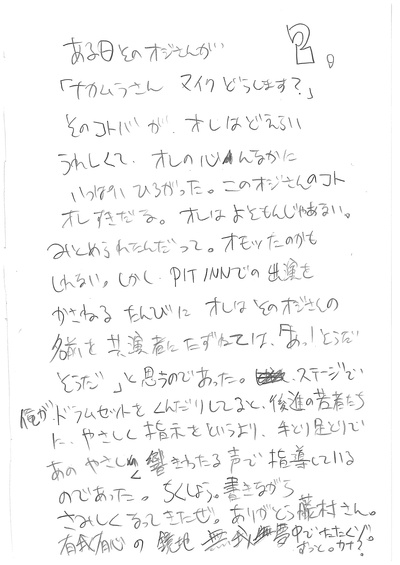 ある日そのオジさんが
「ナカムラさん マイクどうします?」
そのコトバが、オレはどえらい
うれしくて、オレの心んなかに
いっぱいひろがった。このオジさんのコト
オレすきだな。オレはよそもんじゃあない。
みとめられたんだって。オモッたのかも
しれない。しかし、PIT INNでの出演を
かさねるたんびに オレはそのオジさんの
名前を共演者にたずねては、「あっ!そうだ
そうだ」と思うのであった。ステージで
俺がドラムセットをくんだりしてると、後進の若者たち
に、やさしく指示をというより、手とり足とりで
あのやさしく響きわたる声で指導している
のであった。ちくしょう。書きながら
さみしくなってきたぜ。ありがとう藤村さん。
有我有心の 境地 無我夢中でたたくゾ。
ずっと。カナ?